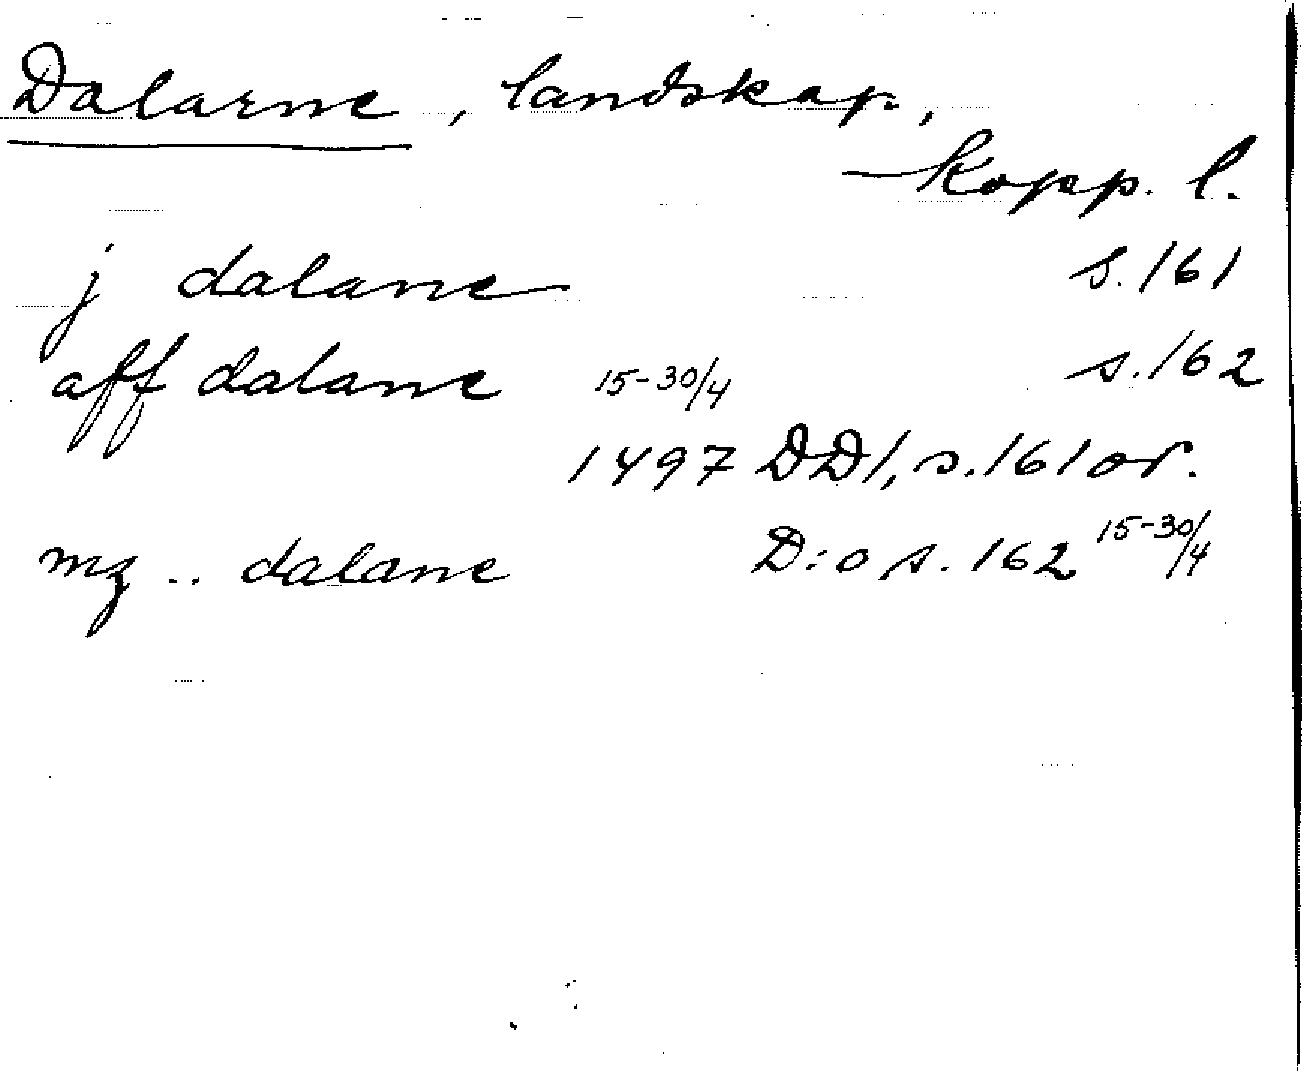 Dalarne, landskap,
Kopp. l.
j dalane s. 161
aff dalane 15-30/4 s. 162
1497 DD1, s. 161 or.
mz .. dalane D:o s. 162 15-30/4